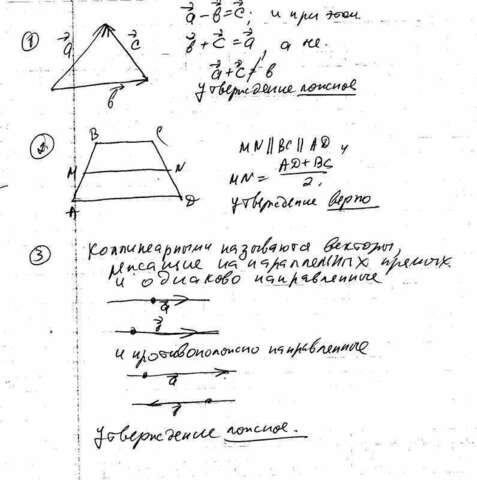 ① a⃗ - b⃗ = c⃗; и при этом
b⃗ + c⃗ = a⃗, а не.
a⃗ + c⃗ ≠ b
утверждение ложное
a⃗
c⃗
b⃗
②
B C
M N
A D
MN || BC || AD и
MN = (AD + BC) / 2.
утверждение верно
③ Коллинеарными называются векторы,
лежащие на параллельных прямых
и одинаково направленные
a⃗
b⃗
и противоположно направленные
a⃗
утверждение ложное.